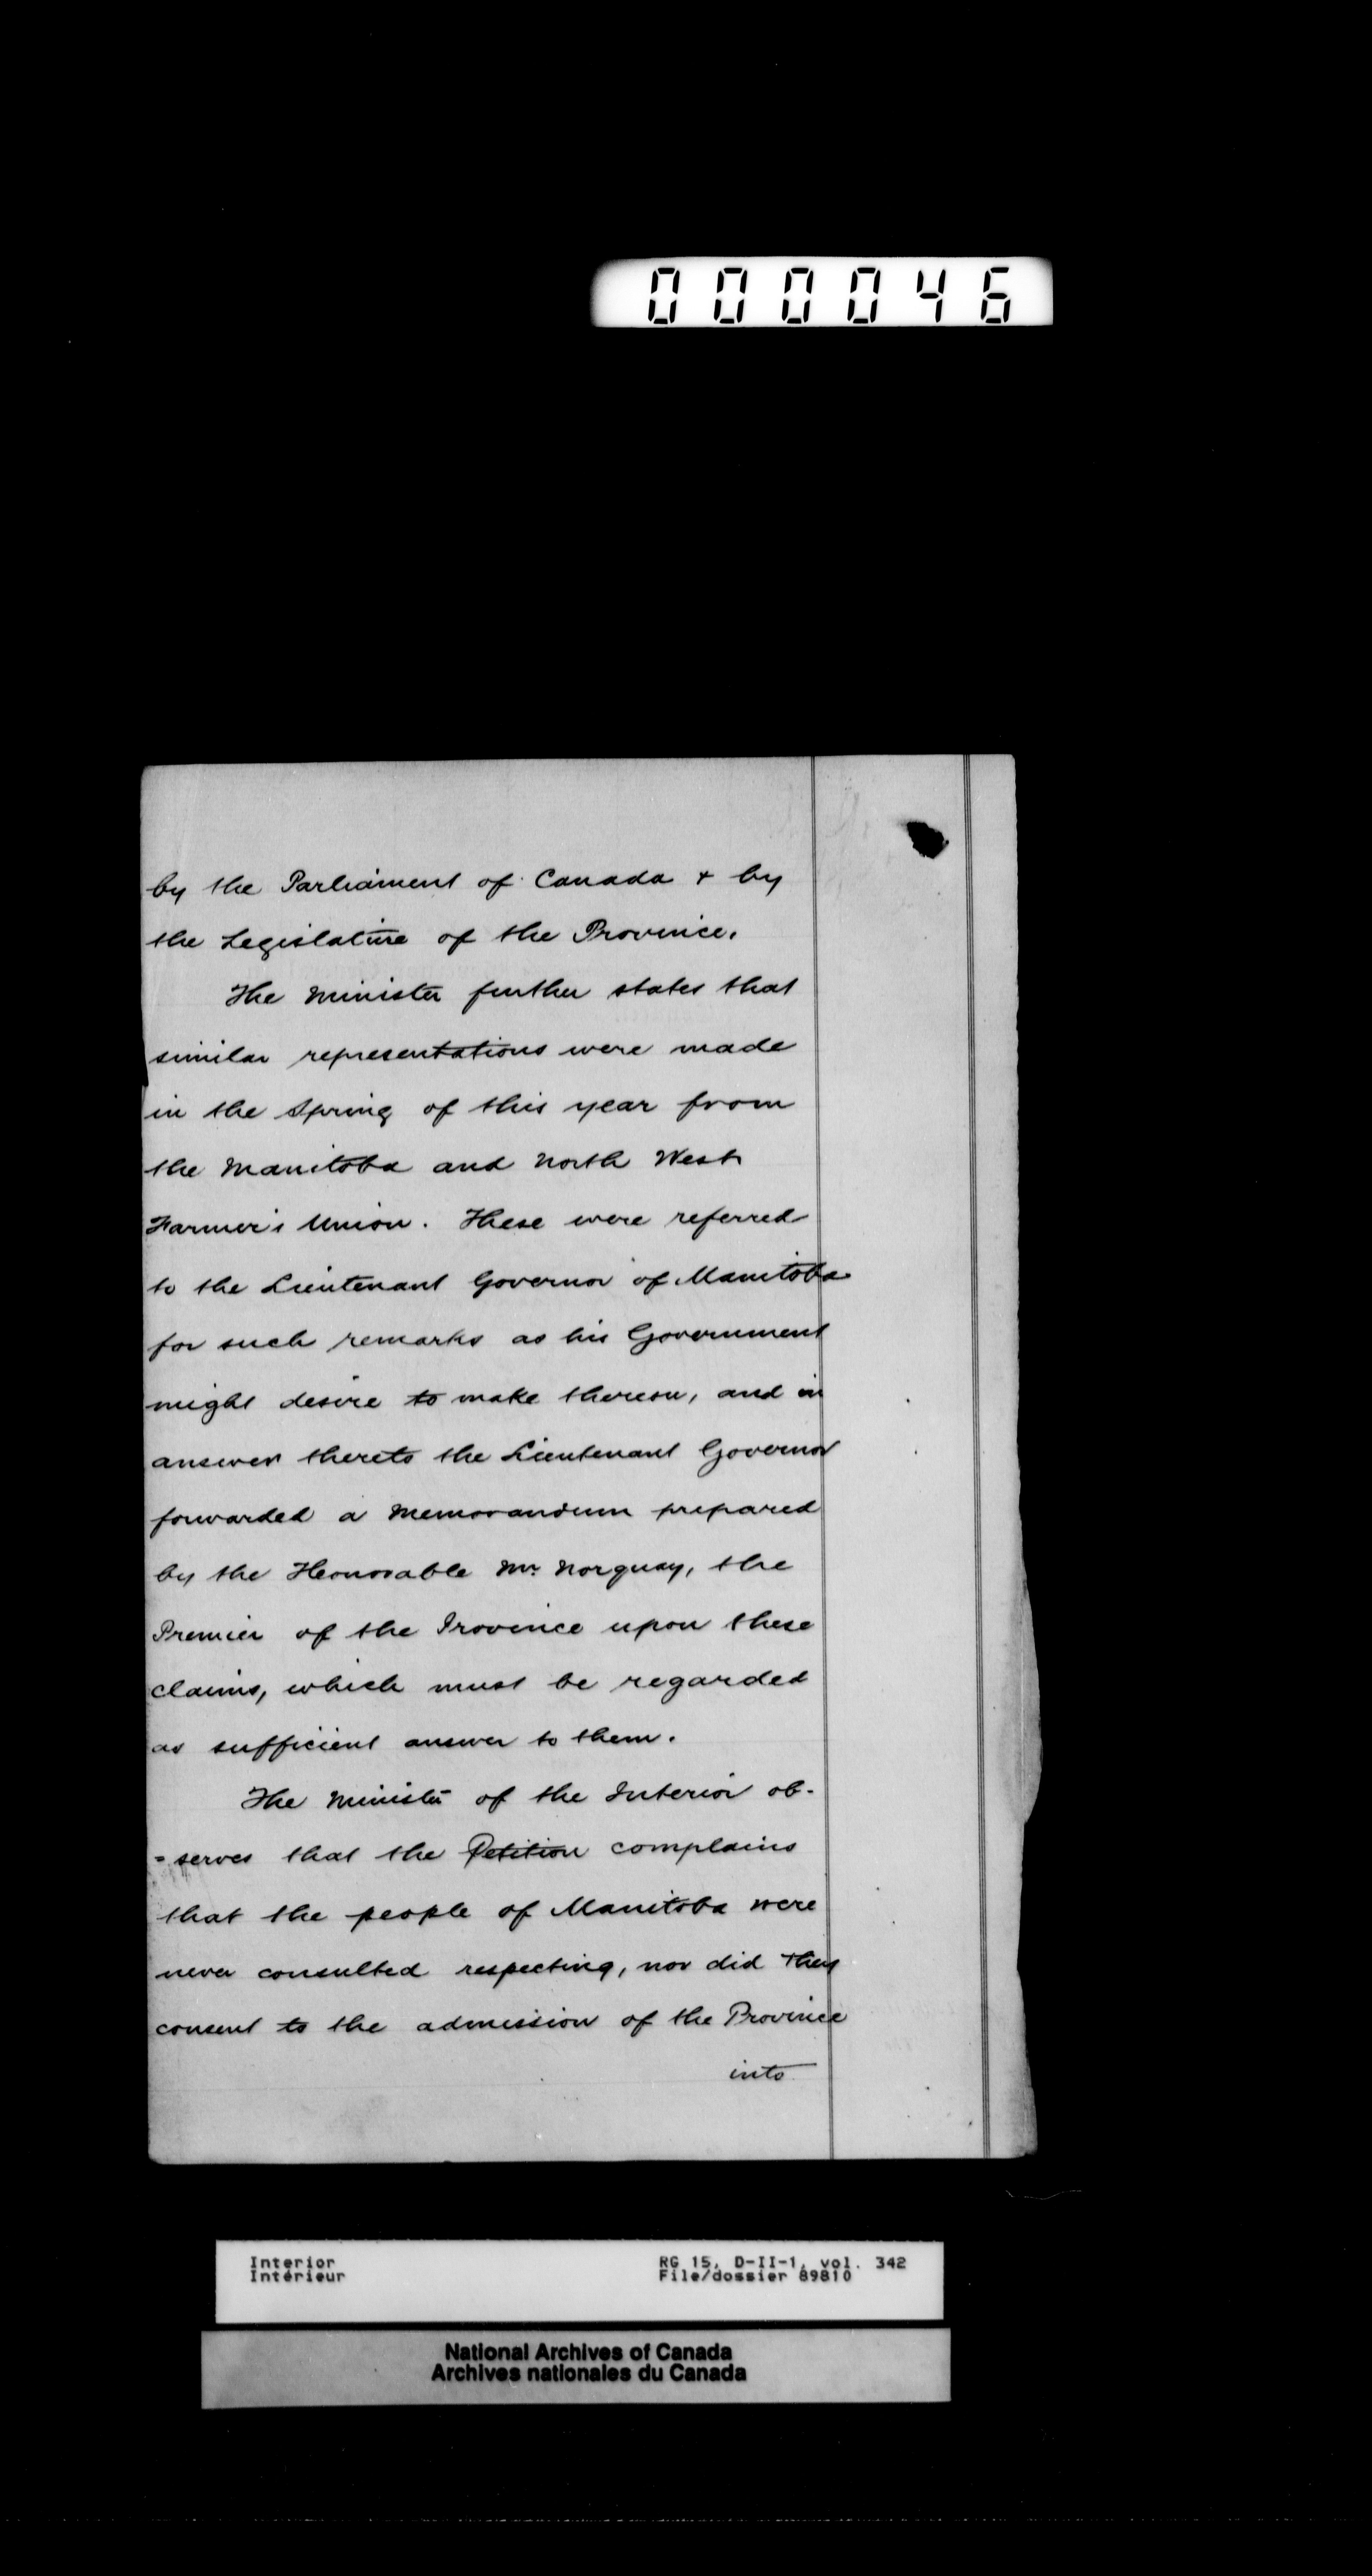 000046
by the Parliament of Canada & by
the Legislature of the Province.
The Minister further states that
similar representations were made
in the Spring of this year from
the Manitoba and North West
Farmer's Union. These were referred
to the Lieutenant Governor of Manitoba
for such remarks as his Government
might desire to make thereon, and in
answer thereto the Lieutenant Governor
forwarded a Memorandum prepared
by the Honorable Mr. Norquay, the
Premier of the Province upon these
claims, which must be regarded
as sufficient answer to them.
The Minister of the Interior ob-
=serves that the Petition complains
that the people of Manitoba were
never consulted respecting, nor did they
consent to the admission of the Province
into
Interior RG 15, D-II-1, vol. 342
Intérieur File/dossier 89810
National Archives of Canada
Archives nationales du Canada